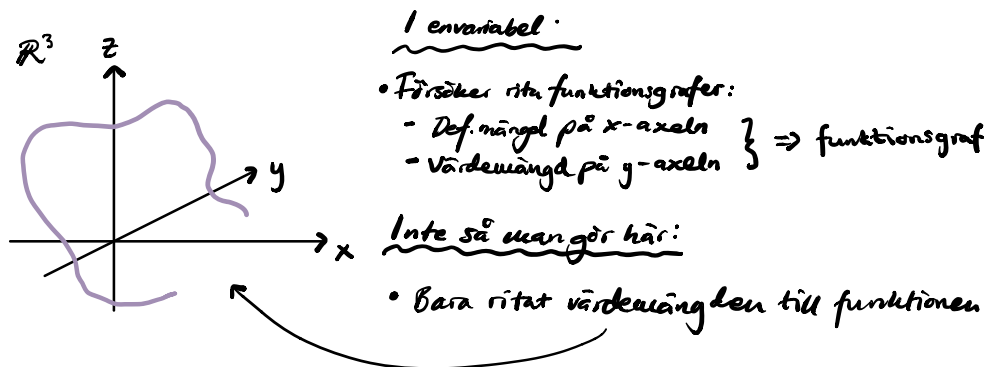 I envariabel.
R³
z
• Försöker rita funktionsgrafer:
- Def.mängd på x-axeln
- Värdemängd på y-axeln
} => funktionsgraf
y
x
Inte så man gör här:
• Bara ritat värdemängden till funktionen